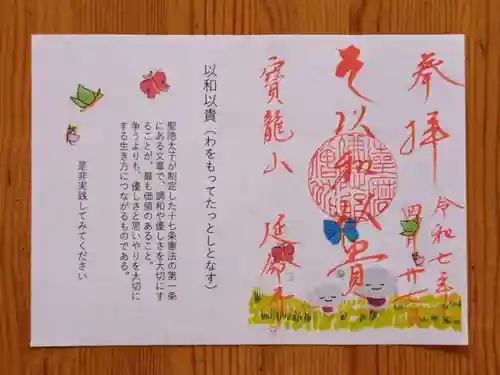 奉拝
令和七年
四月廿一
以和為貴
寳龍山
延命寺
以和以貴（わをもってたっとしとなす）
聖徳太子が制定した十七条憲法の第一条
にある文章で、調和や優しさを大切にす
ることが、最も価値のあること。
争うよりも、優しさと思いやりを大切に
する生き方につながるものである。
是非実践してみてください